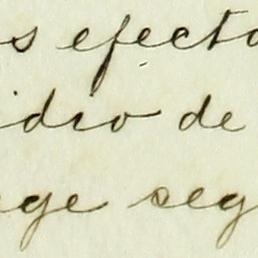 s efecto
idro de
ge seg